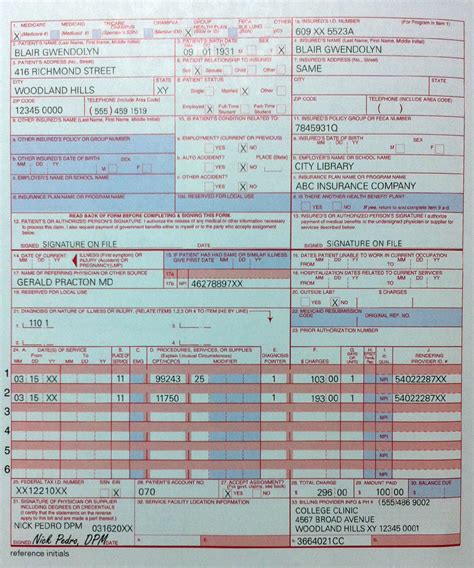 1. MEDICARE MEDICAID TRICARE CHAMPVA GROUP HEALTH PLAN FECA OTHER 1a. INSURED'S I.D. NUMBER (For Program in Item 1)
X 609 XX 5523A
2. PATIENT'S NAME (Last Name, First Name, Middle Initial) 3. PATIENT'S BIRTH DATE SEX 4. INSURED'S NAME (Last Name, First Name, Middle Initial)
BLAIR GWENDOLYN 09 01 1931 X BLAIR GWENDOLYN
5. PATIENT'S ADDRESS (No., Street) 6. PATIENT RELATIONSHIP TO INSURED 7. INSURED'S ADDRESS (No., Street)
416 RICHMOND STREET X Spouse Child Other SAME
CITY STATE 8. PATIENT STATUS CITY STATE
WOODLAND HILLS XY Single Married X Other
ZIP CODE TELEPHONE (Include Area Code) ZIP CODE TELEPHONE (Include Area Code)
12345 0000 (555) 459 1519 Employed Full-Time Student Part-Time Student
9. OTHER INSURED'S NAME (Last Name, First Name, Middle Initial) 10. IS PATIENT'S CONDITION RELATED TO: 11. INSURED'S POLICY GROUP OR FECA NUMBER
7845931Q
a. OTHER INSURED'S POLICY OR GROUP NUMBER a. EMPLOYMENT? (CURRENT OR PREVIOUS) a. INSURED'S DATE OF BIRTH SEX
YES X NO
b. OTHER INSURED'S DATE OF BIRTH SEX b. AUTO ACCIDENT? PLACE (State) b. EMPLOYER'S NAME OR SCHOOL NAME
YES X NO CITY LIBRARY
c. EMPLOYER'S NAME OR SCHOOL NAME c. OTHER ACCIDENT? c. INSURANCE PLAN NAME OR PROGRAM NAME
YES X NO ABC INSURANCE COMPANY
d. INSURANCE PLAN NAME OR PROGRAM NAME 10d. RESERVED FOR LOCAL USE d. IS THERE ANOTHER HEALTH BENEFIT PLAN?
YES X NO If yes, return to and complete item 9 a-d.
READ BACK OF FORM BEFORE COMPLETING & SIGNING THIS FORM.
SIGNED SIGNATURE ON FILE DATE SIGNED SIGNATURE ON FILE
14. DATE OF CURRENT: ILLNESS (First symptom) OR INJURY (Accident) OR PREGNANCY(LMP) 15. IF PATIENT HAS HAD SAME OR SIMILAR ILLNESS. GIVE FIRST DATE MM DD YY 16. DATES PATIENT UNABLE TO WORK IN CURRENT OCCUPATION
17. NAME OF REFERRING PHYSICIAN OR OTHER SOURCE 17a. 18. HOSPITALIZATION DATES RELATED TO CURRENT SERVICES
GERALD PRACTON MD 17b NPI 46278897XX
19. RESERVED FOR LOCAL USE 20. OUTSIDE LAB? $ CHARGES
YES X NO
21. DIAGNOSIS OR NATURE OF ILLNESS OR INJURY, (RELATE ITEMS 1,2,3 OR 4 TO ITEM 24E BY LINE) 22. MEDICAID RESUBMISSION CODE ORIGINAL REF. NO.
1. 110 1 3.
23. PRIOR AUTHORIZATION NUMBER
2. 4.
24. A. DATE(S) OF SERVICE B. C. D. PROCEDURES, SERVICES, OR SUPPLIES E. F. G. H. I. J.
From To PLACE OF SERVICE EMG (Explain Unusual Circumstances) DIAGNOSIS POINTER $ CHARGES DAYS OR UNITS ID. QUAL. RENDERING PROVIDER ID. #
MM DD YY MM DD YY CPT/HCPCS MODIFIER
1 03 15 XX 11 99243 25 1 103 00 1 NPI 54022287XX
2 03 15 XX 11 11750 1 193 00 1 NPI 54022287XX
3 NPI
4 NPI
5 NPI
6 NPI
25. FEDERAL TAX I.D. NUMBER SSN EIN 26. PATIENT'S ACCOUNT NO. 27. ACCEPT ASSIGNMENT? 28. TOTAL CHARGE 29. AMOUNT PAID 30. BALANCE DUE
XX12210XX X 070 X YES NO $ 296 00 $ 100 00 $
31. SIGNATURE OF PHYSICIAN OR SUPPLIER INCLUDING DEGREES OR CREDENTIALS 32. SERVICE FACILITY LOCATION INFORMATION 33. BILLING PROVIDER INFO & PH # (555)486 9002
(I certify that the statements on the reverse apply to this bill and are made a part thereof.) COLLEGE CLINIC
4567 BROAD AVENUE
NICK PEDRO DPM 031620XX WOODLAND HILLS XY 12345 0001
SIGNED Nick Pedro, DPM DATE a. b. a. 3664021CC b.
reference initials